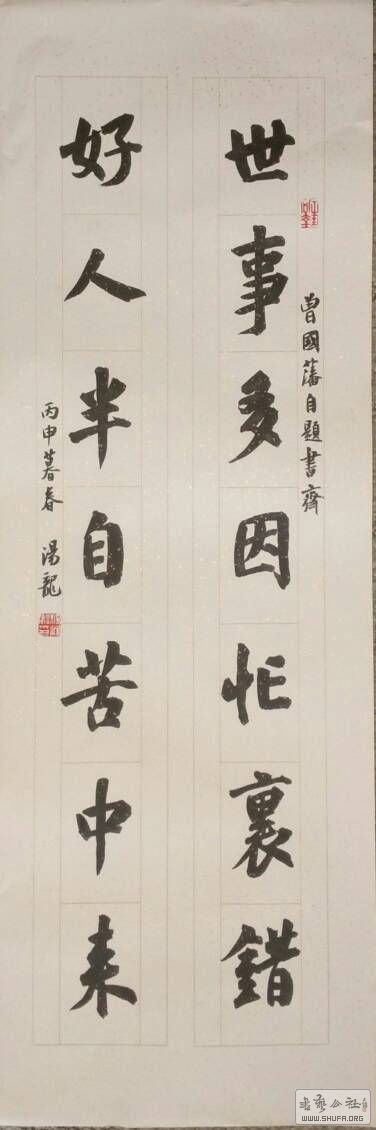 曾國藩自題書齋
世事多因忙裏錯
好人半自苦中來
丙申暮春 湯龍
書藝公社
WWW.SHUFA.ORG